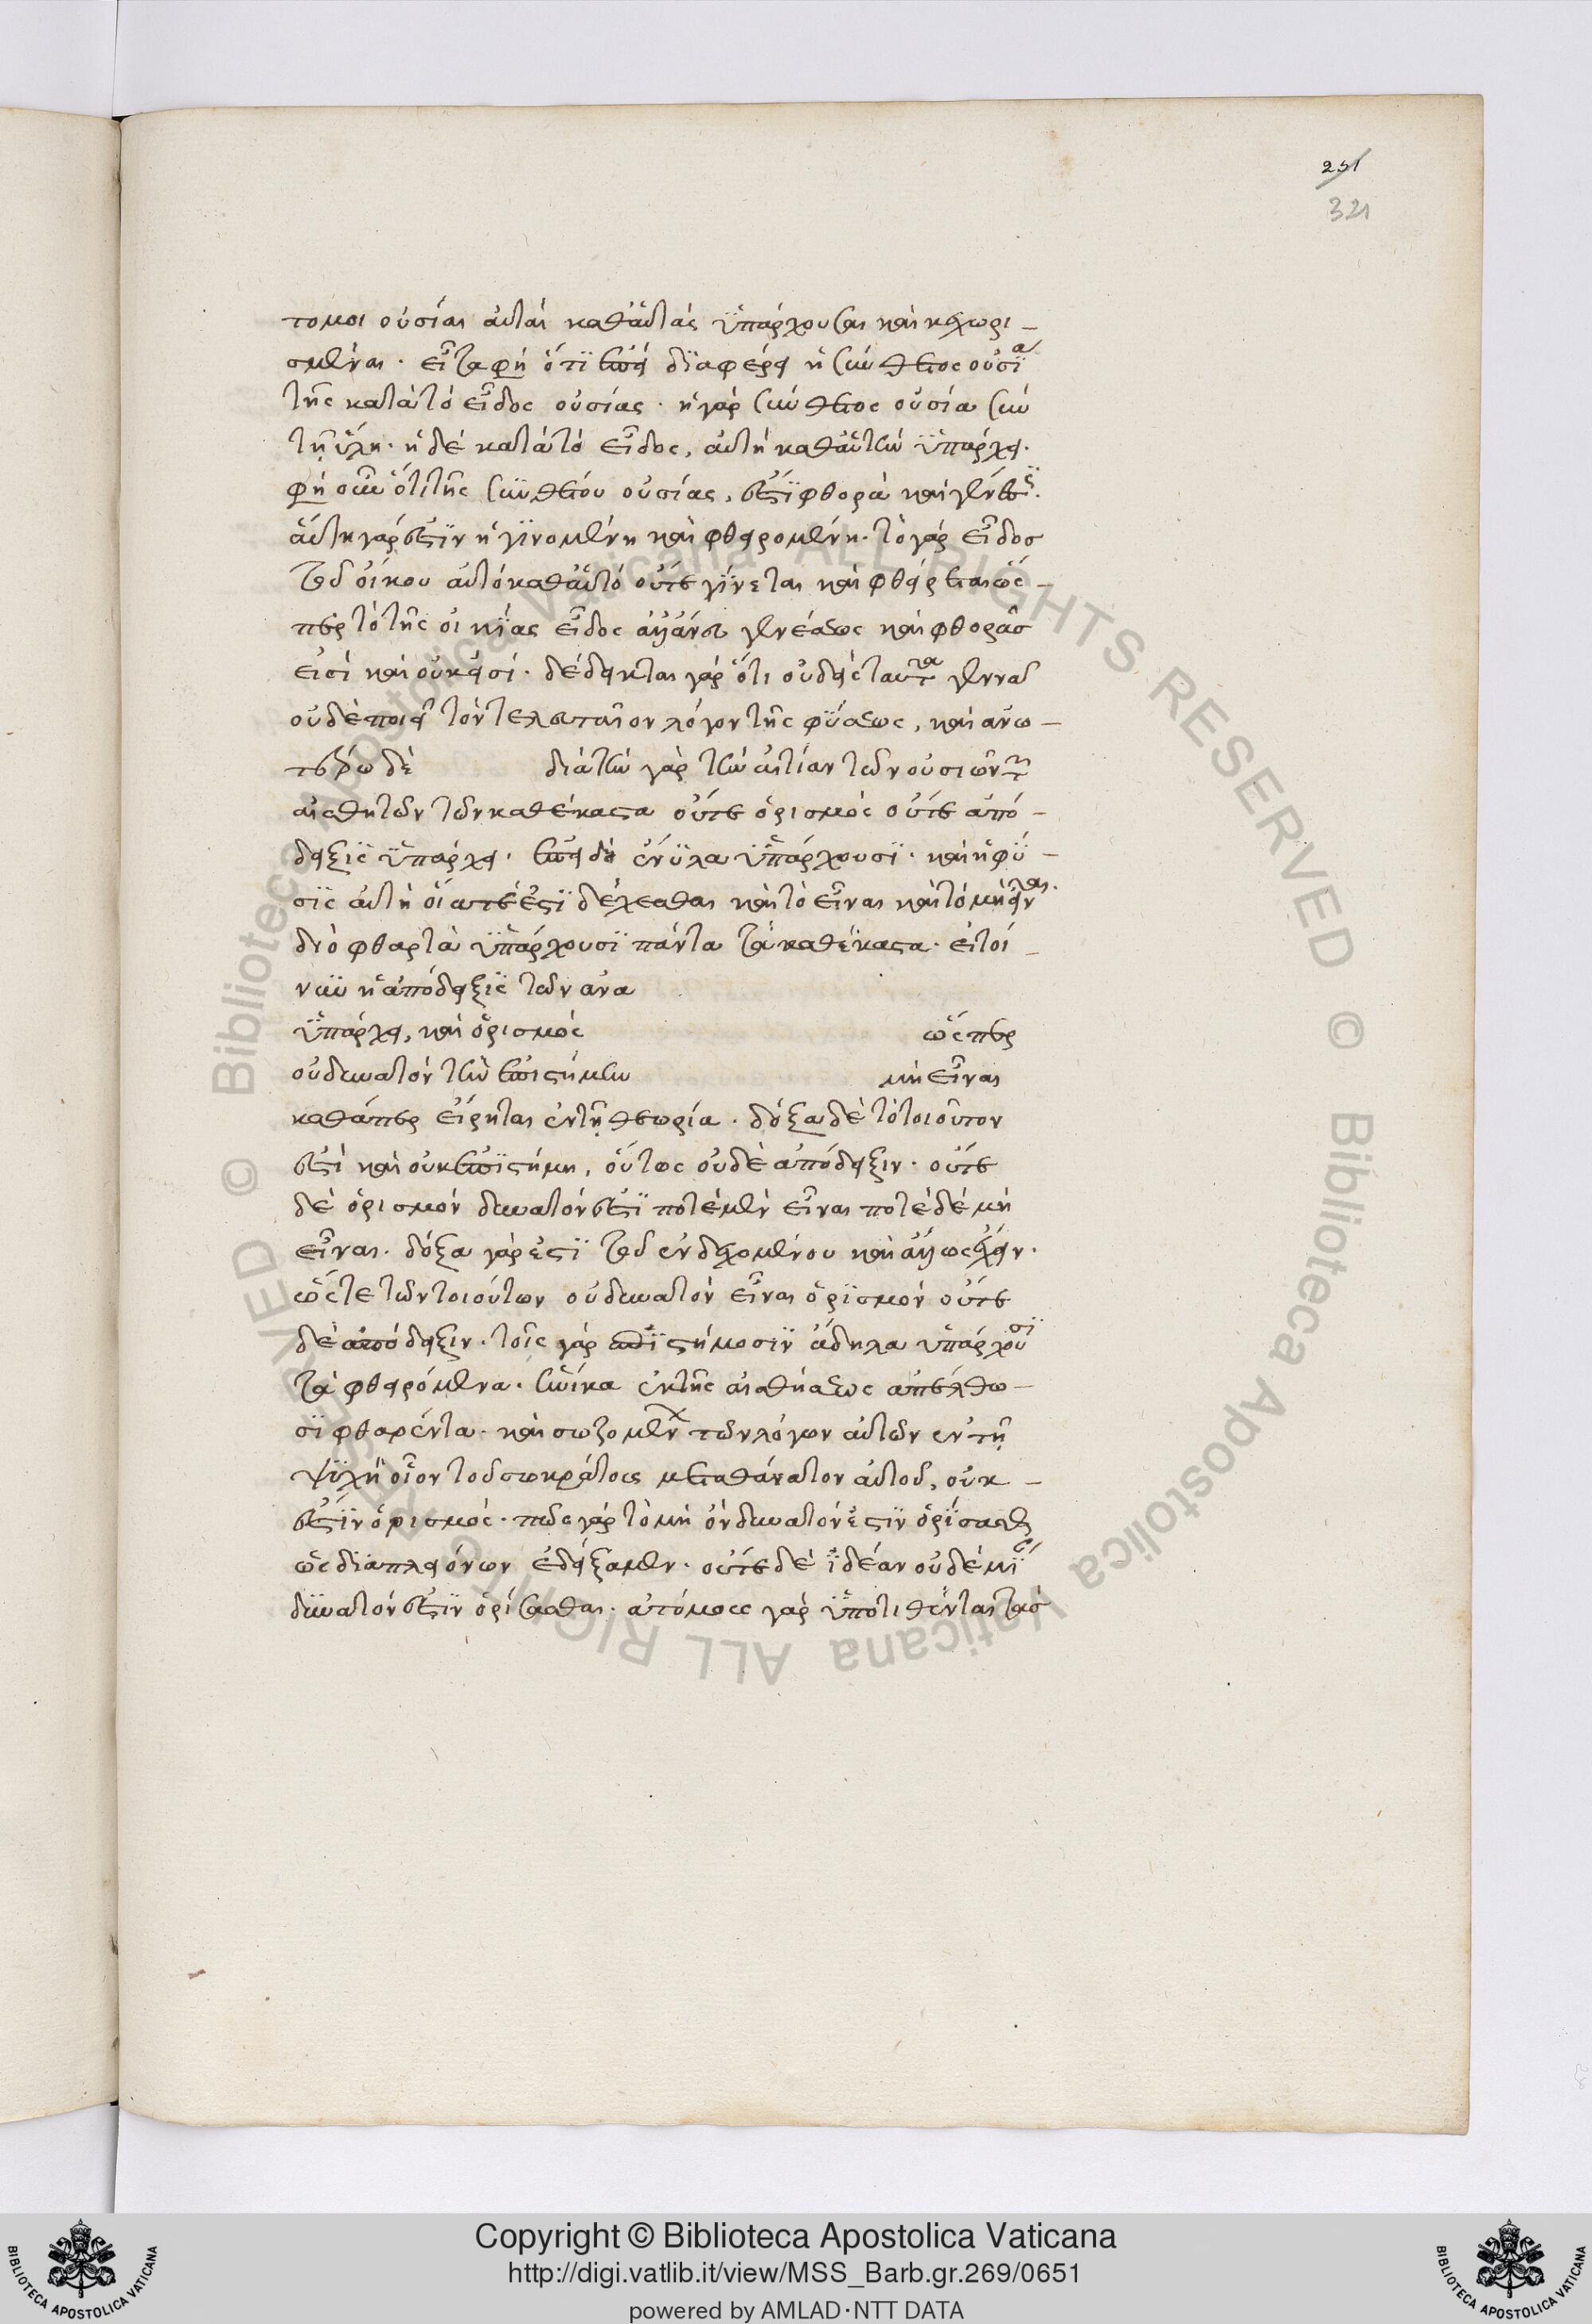 251
321
τομοι οὐσίαι αὐταὶ καθ' αὑτὰς ὑπάρχουσαι καὶ κεχωρι-
σμέναι. εἶτα φη ὅτι ἐπεὶ διαφέρει ἡ σύνθετος οὐσία
τῆς κατὰ τὸ εἶδος οὐσίας. ἡ γὰρ σύνθετος οὐσία σὺν
τῇ ὕλη. ἡ δὲ κατὰ τὸ εἶδος, αὐτὴ καθ' αὑτὴν ὑπάρχει.
φη οὖν ὅτι τῆς συνθέτου οὐσίας, ἐστὶ φθορὰ καὶ γένεσις.
αὕτη γάρ ἐστιν ἡ γινομένη καὶ φθειρομένη. τὸ γὰρ εἶδος
τοῦ οἴκου αὐτὸ καθ' αὑτὸ οὔτε γίνεται καὶ φθείρεται ὥσ-
περ τὸ τῆς οἰκίας εἶδος ἀλλ' ἄνευ γενέσεως καὶ φθορᾶς
εἰσὶ καὶ οὐκ εἰσί. δέδεικται γὰρ ὅτι οὐδεὶς ταῦτα γεννᾶ
οὐδὲ ποιεῖ τὸν τελευταῖον λόγον τῆς φύσεως, καὶ ἀνω-
τέρω δὲ διὰ τὴν γὰρ τὴν αἰτίαν τῶν οὐσιῶν τῶν
αἰσθητῶν τῶν καθέκαστα οὔτε ὁρισμὸς οὔτε ἀπό-
δειξις ὑπάρχει. ἐπειδὴ ἐνυλα ὑπάρχουσι. καὶ ἡ φύ-
σις αὐτὴ οἵα τέ ἐστι δέχεσθαι καὶ τὸ εἶναι καὶ τὸ μὴ εἶναι.
διὸ φθαρτὰ ὑπάρχουσι πάντα τὰ καθέκαστα. εἰ τοί-
νυν ἡ ἀπόδειξις τῶν ανα
ὑπάρχει, καὶ ὁρισμὸς ὥσπερ
οὐ δυνατὸν τὴν ἐπιστήμην μὴ εἶναι
καθάπερ εἴρηται ἐν τῇ θεωρία. δόξα δὲ τὸ τοιοῦτον
ἐστὶ καὶ οὐκ ἐπιστήμη, οὕτως οὐδὲ ἀπόδειξιν. οὔτε
δὲ ὁρισμὸν δυνατόν ἐστι ποτὲ μὲν εἶναι ποτὲ δὲ μὴ
εἶναι. δόξα γάρ ἐστι τοῦ ἐνδεχομένου καὶ ἄλλως ἔχειν.
ὥστε τῶν τοιούτων οὐ δυνατὸν εἶναι ὁρισμὸν οὔτε
δὲ ἀπόδειξιν. τοῖς γὰρ ἐπιστήμοσιν ἄδηλα ὑπάρχουσι
τὰ φθειρόμενα. ἡνίκα ἐκ τῆς αἰσθήσεως ἀπέλθω-
σι φθαρέντα. καὶ σωζομένων τῶν λόγων αὐτῶν ἐν τῇ
ψυχῇ οἷον τοῦ σωκράτους μετὰ θάνατον αὐτοῦ, οὐκ-
ἔστιν ὁρισμός. πῶς γὰρ τὸ μὴ ὂν δυνατόν ἐστιν ὁρίσασθαι
ὡς διὰ πλειόνων ἐδείξαμεν. οὔτε δὲ ἰδέαν οὐδεμίαν
δυνατόν ἐστιν ὁρίσασθαι. ἀτόμους γὰρ ὑποτιθένται τὰς
Copyright © Biblioteca Apostolica Vaticana
http://digi.vatlib.it/view/MSS_Barb.gr.269/0651
powered by AMLAD·NTT DATA